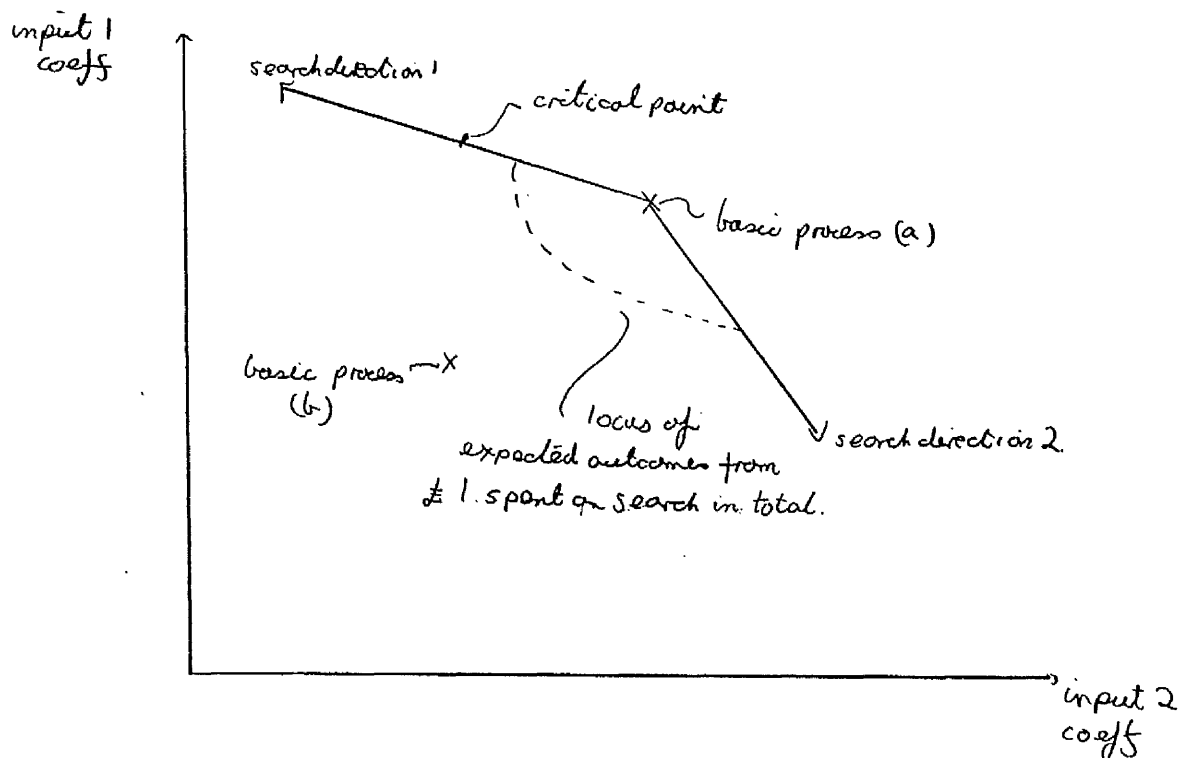 input 1
coeff
search direction 1
critical point
basic process (a)
basic process
(b)
locus of
expected outcomes from
£ 1. spent on search in total.
search direction 2.
input 2
coeff